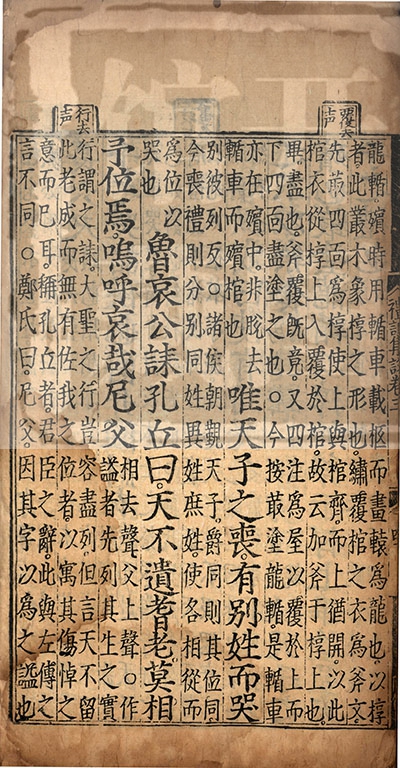 覆去声
行去声
禮記集說卷三
龍輴。殯時用輴車載柩而畫轅爲龍也。以椁
者。此叢木象椁之形也。繡覆棺之衣爲斧文。
先菆四面爲椁。使上與棺齊。而上猶開。以此
棺衣從椁上入覆於棺。故云加斧于椁上也。
畢。盡也。斧覆既竟。又四注爲屋以覆於上而
下四面盡塗之也。○今按菆塗龍輴。是輴車
亦在殯中。非脫去
輴車而殯棺也
唯天子之喪。有別姓而哭
別彼列反。○諸侯朝覲天子。爵同則其位同
今喪禮則分別同姓異姓庶姓。使各相從而
爲位以
哭也
魯哀公誄孔丘曰。天不遺耆老。莫相
予位焉。嗚呼哀哉。尼父
相去聲。父上聲。○作
謚者。先列其生之實
行謂之誄。大聖之行豈容盡列。但言天不留
此老成而無有佐我之位者。以寓其傷悼之
意而已耳。稱孔丘者。君臣之辭。此與左傳之
言不同。○鄭氏曰。尼父。因其字以爲之謚也